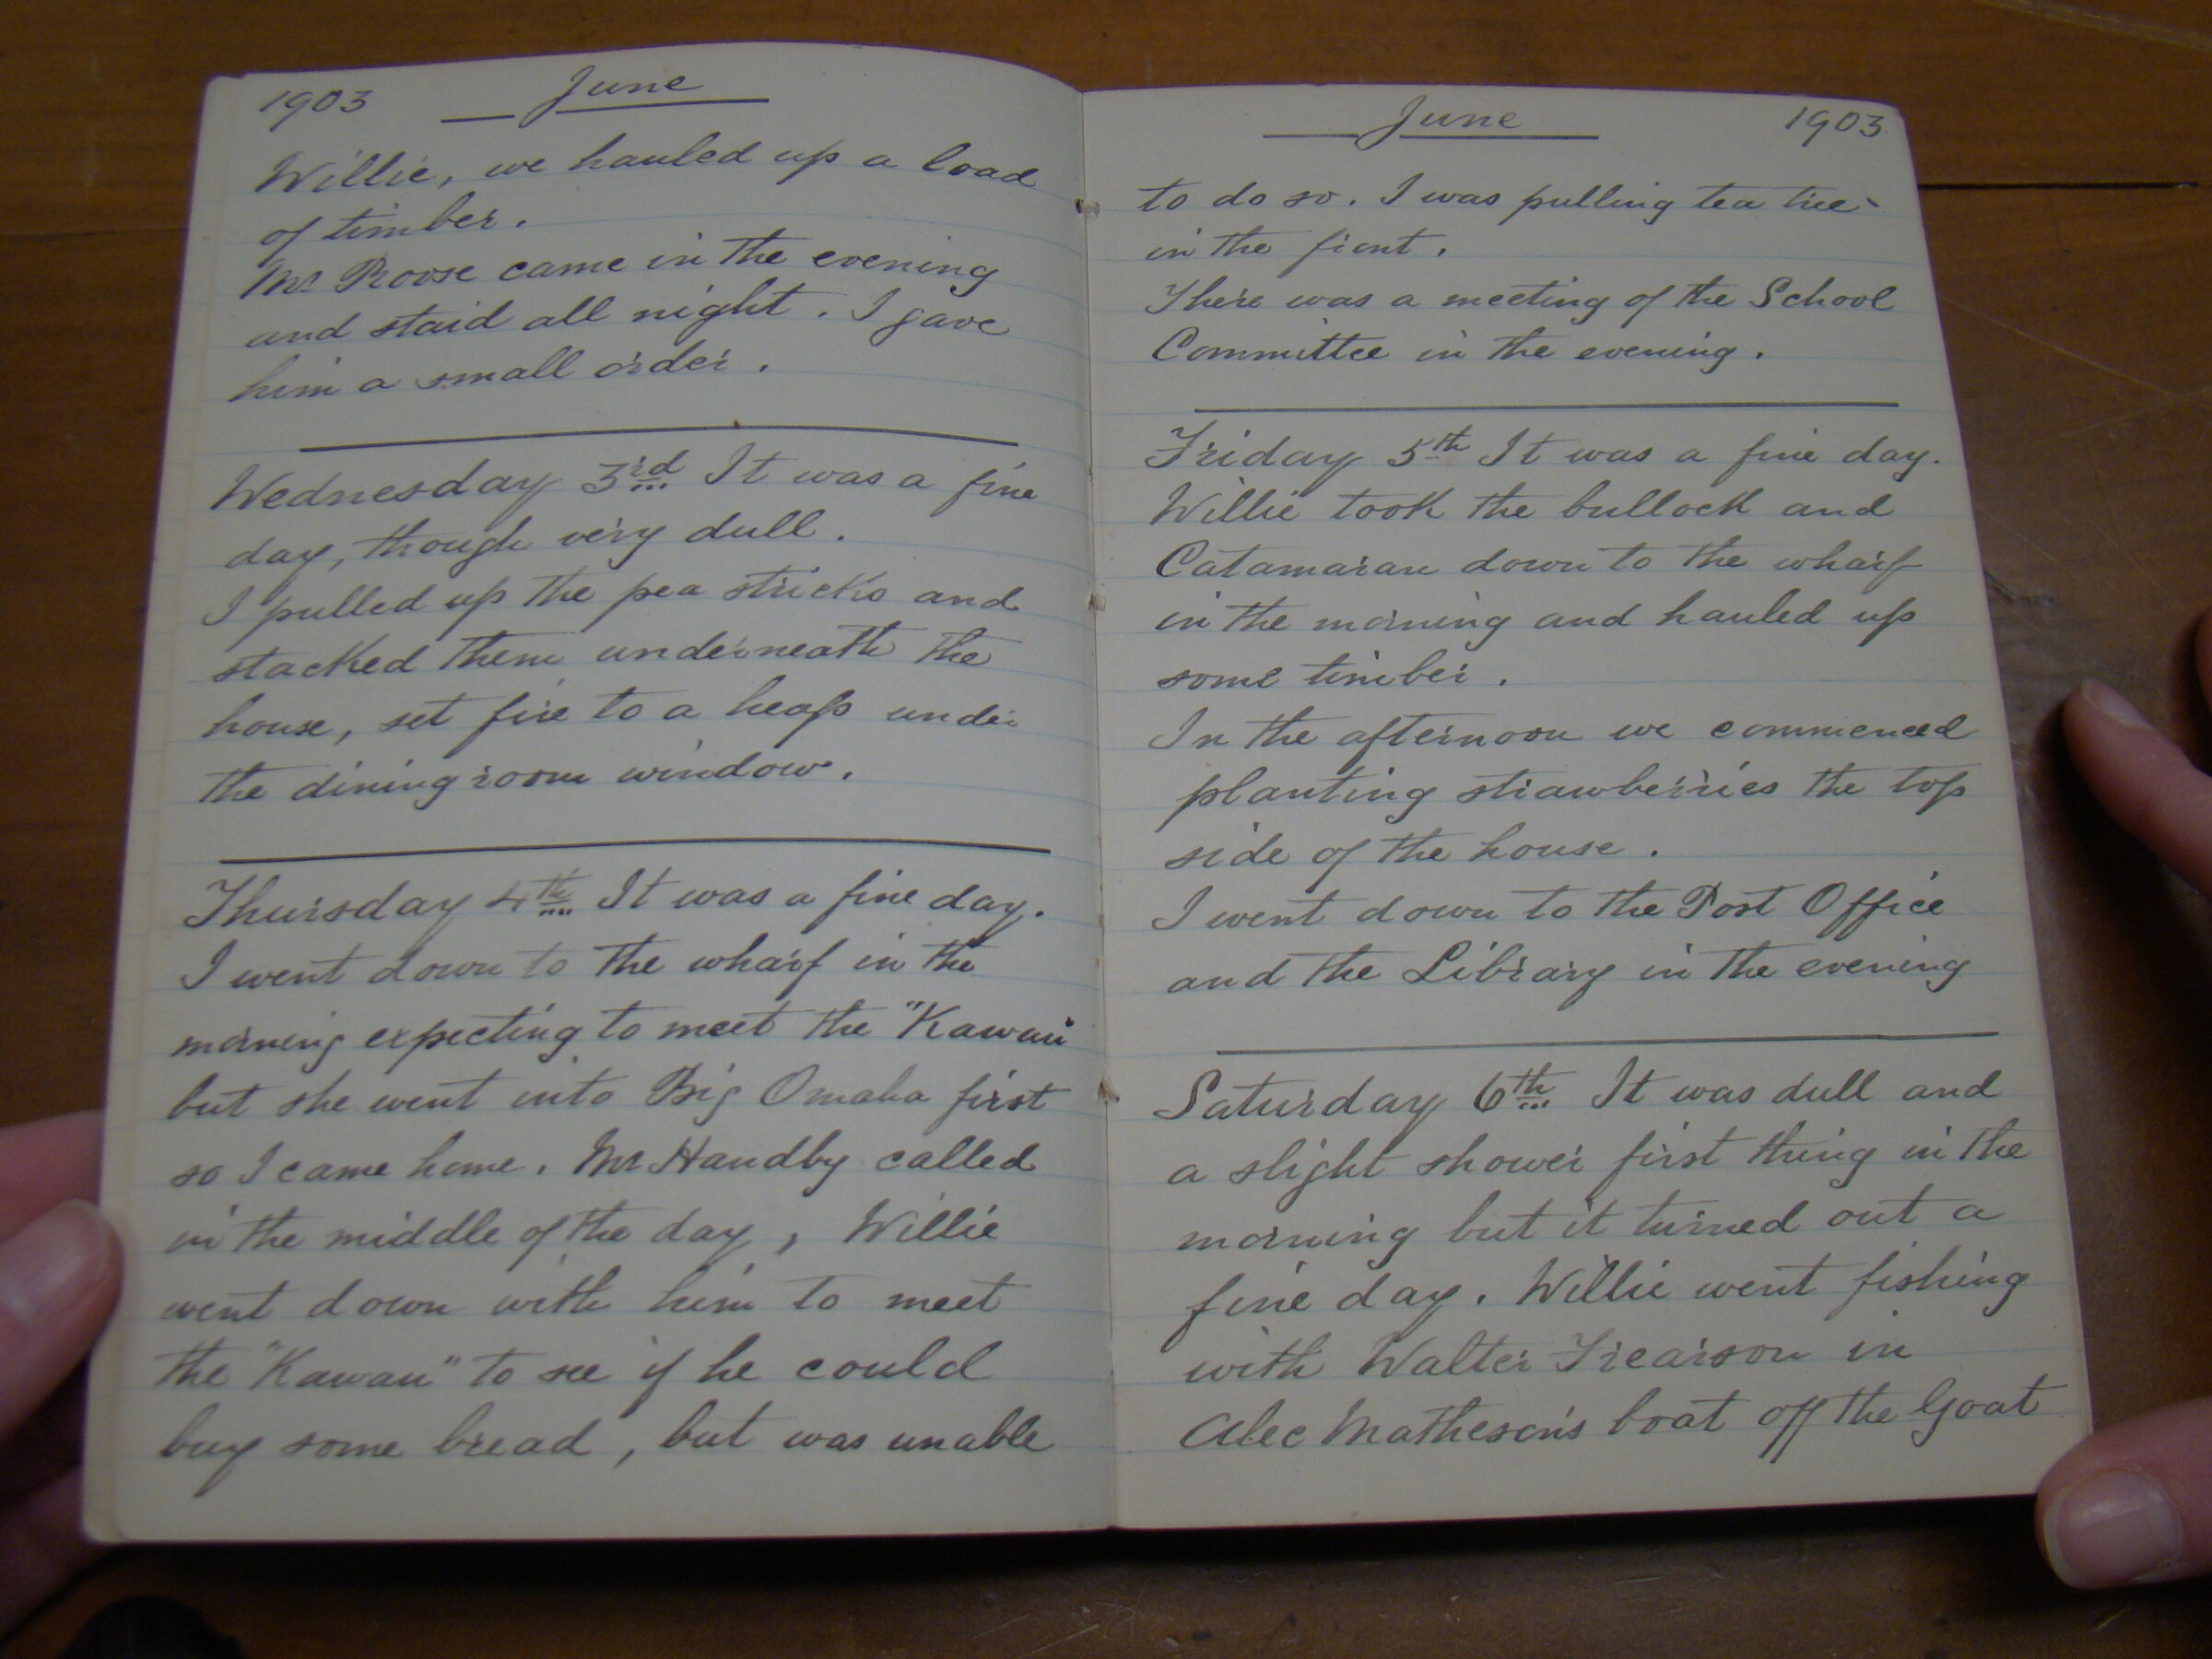 1903 June
Willie, we hauled up a load
of timber.
Mr Roose came in the evening
and staid all night. I gave
him a small order.
Wednesday 3rd It was a fine
day, though very dull.
I pulled up the pea sticks and
stacked them underneath the
house, set fire to a heap under
the dining room window.
Thursday 4th It was a fine day.
I went down to the wharf in the
morning expecting to meet the "Kawau"
but she went into Big Omaha first
so I came home. Mr Handby called
in the middle of the day, Willie
went down with him to meet
the "Kawau" to see if he could
buy some bread, but was unable
June 1903
to do so. I was pulling tea tree
in the front.
There was a meeting of the School
Committee in the evening.
Friday 5th It was a fine day.
Willie took the bullock and
Catamaran down to the wharf
in the morning and hauled up
some timber.
In the afternoon we commenced
planting strawberries the top
side of the house.
I went down to the Post Office
and the Library in the evening
Saturday 6th It was dull and
a slight shower first thing in the
morning but it turned out a
fine day. Willie went fishing
with Walter Frearson in
Alec Matheson's boat off the Goat